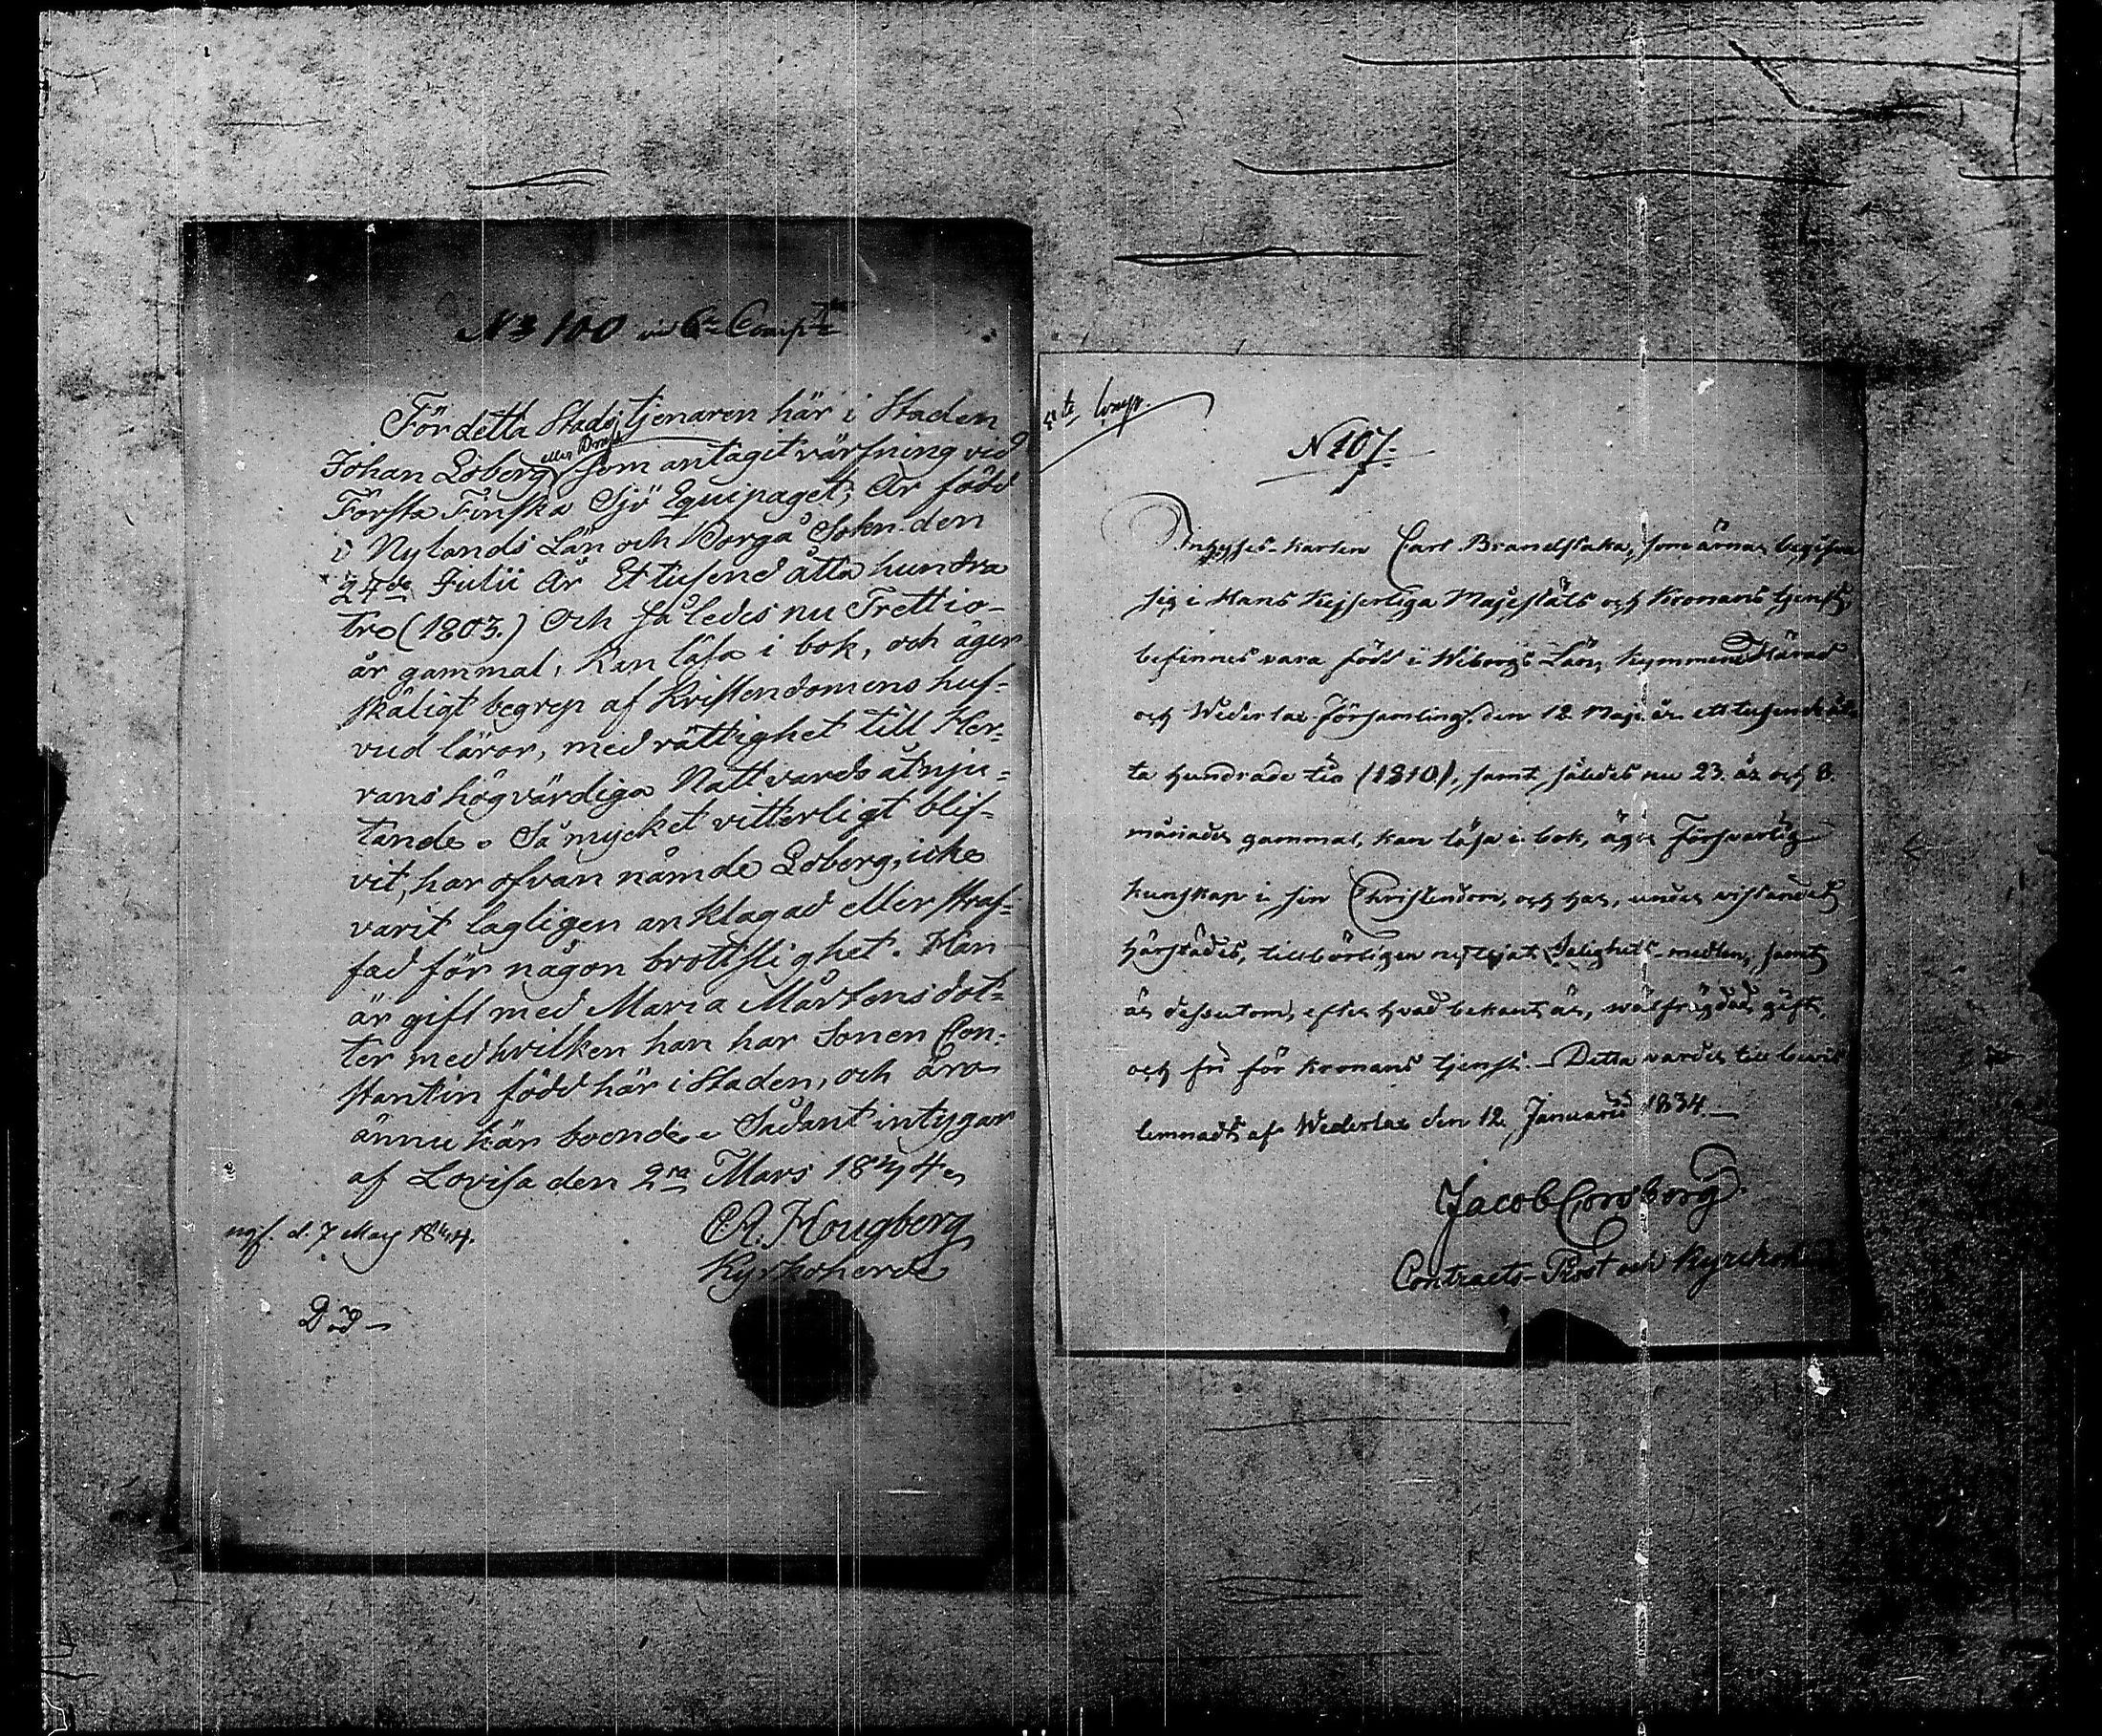 No 100 vid 6te Comp.
För detta Stads tjenaren här i Staden
Johan Loberg eller som antagit värfning vid
Första Finska Sjö Equipaget, Är född
i Nylands Län och Borgå Sokn den
24de Julii År Et tusend åtta hundra
tre (1803.) Och således nu Trettio-
år gammal, Kan läsa i bok, och äger
skäligt begrep af Kristendomens huf-
vud läror, med rättighet till Her-
rans högvärdiga Nattvards åtnju-
tande. Så mycket vitterligt blif-
vit, har ofvan nämde Loberg, icke
varit lagligen anklagad eller straf-
fad för någon brottslighet. Han
är gift med Maria Mårtensdot-
ter med hvilken han har Sonen Con-
stantin född här i Staden, och äro
ännu här boende. Sådant intygar
af Lovisa den 2ra Mars 1834.
C.A. Hougberg
Kyrkoherde
d. 7 Mars 1834.
Död
5te Comp.
N 107.
Inhyses-karlen Carl Brandstaka, som ärnar begifva
sig i Hans Kejserliga Majestäts och Kronans tjenst,
befinnes vara född i Wiborgs Län, Kymmene Härad
och Wederlax församling den 12 Maji år ett tusende åt-
ta hundrade tio (1810), samt således nu 23 år och 8
månader gammal, kan läsa i bok, äger försvarlig
kunskap i sin Christendom, och har, under vistandet
härstädes, tillbörligen nyttjat Salighets-medlen, samt
är dessutom, efter hvad bekant är, wälfrägdad, gift,
och fri för Kronans tjenst. Detta varder till bewis
lemnadt af Wederlax den 12 Januarii 1834
Jacob
Contracts-Prost och Kyrckoh